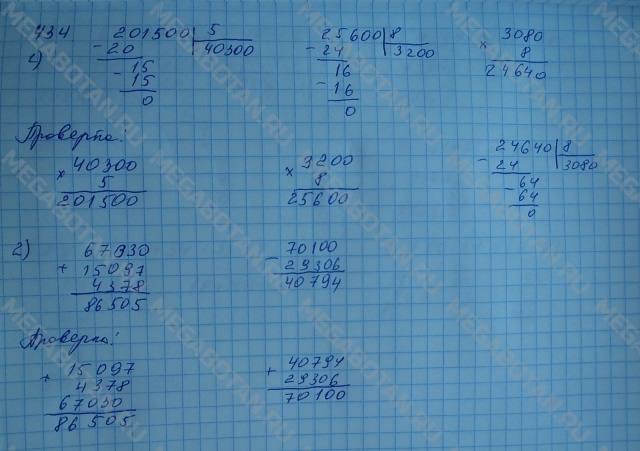 434
1)
201500 | 5
- 20 | 40300
15
- 15
0
25600 | 8
- 24 | 3200
16
- 16
0
× 3080
8
24640
Проверка:
× 40300
5
201500
× 3200
8
25600
- 24640 | 8
24 | 3080
64
- 64
0
2)
67030
+ 15097
4378
86505
- 70100
29306
40794
Проверка:
+ 15097
4378
67030
86505
+ 40794
29306
70100
MEGABOTAN.RU